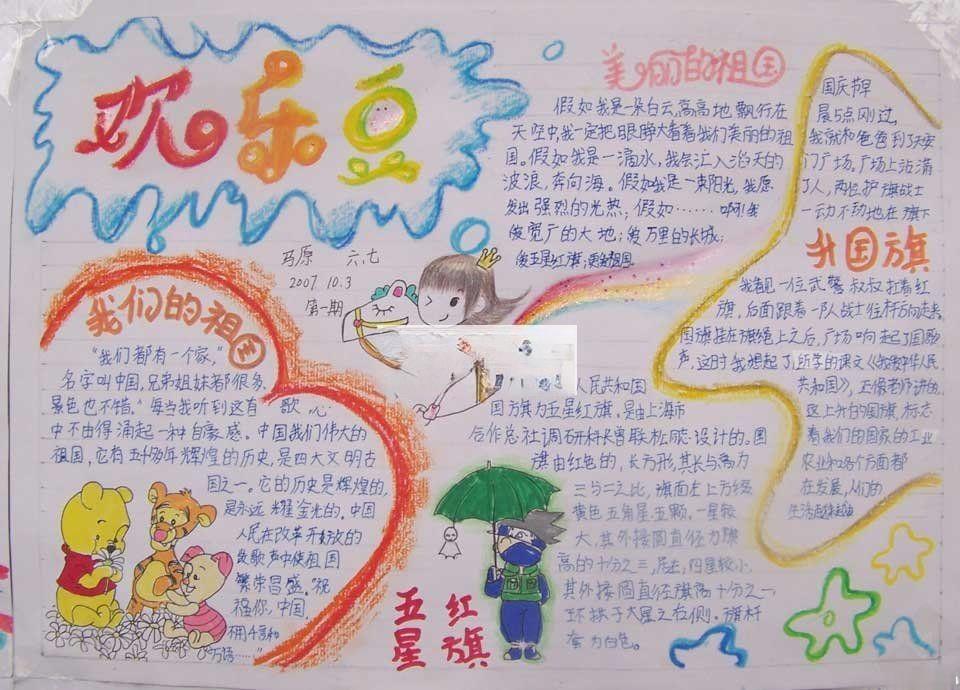 欢乐豆
马原 六.七
2007.10.3
第一期
美丽的祖国
假如我是一朵白云,高高地飘行在
天空中,我一定把眼睁大看着我们美丽的祖
国。假如我是一滴水,我会汇入滔天的
波浪,奔向海。假如我是一束阳光,我愿
发出强烈的光热;假如……啊!我
爱宽广的大地;爱万里的长城;
爱五星红旗;更爱祖国
升国旗
国庆节早
晨5点刚过,
我就和爸爸到天安
门广场。广场上站满
了人,两位护旗战士
一动不动地在旗下
我看见一位武警叔叔扛着红
旗,后面跟着一队战士往杆方向走去
国旗挂在旗绳上之后,广场响起了国歌
声,这时我想起了所学的课文
共和国》,
这上升的国旗,标志
着我们的国家的工业
农业和各个方面都
在发展,人们的
生活
我们的祖国
“我们都有一个家,
名字叫中国,兄弟姐妹都很多,
景色也不错。”每当我听到这首歌,心
中不由得涌起一种自豪感。中国我们伟大的
祖国,它有五千多年辉煌的历史,是四大文明古
国之一。它的历史是辉煌的,
是永远耀金光的。中国
人民在改革开放的
歌声中使祖国
繁荣昌盛。祝
福你,中国。
万语……”
五星红旗
人民共和国
国旗为五星红旗,是由上海市
合作总社调研科长曾联松同志设计的。国
旗由红色的,长方形,其长与高为
三与二之比,旗面左上方缀
黄色五角星五颗。一星较
大,其外接圆直径为旗
高的十分之三,居左,四星较小,
其外接圆直径旗高十分之一
环拱于大星之右侧。旗杆
套为白色。